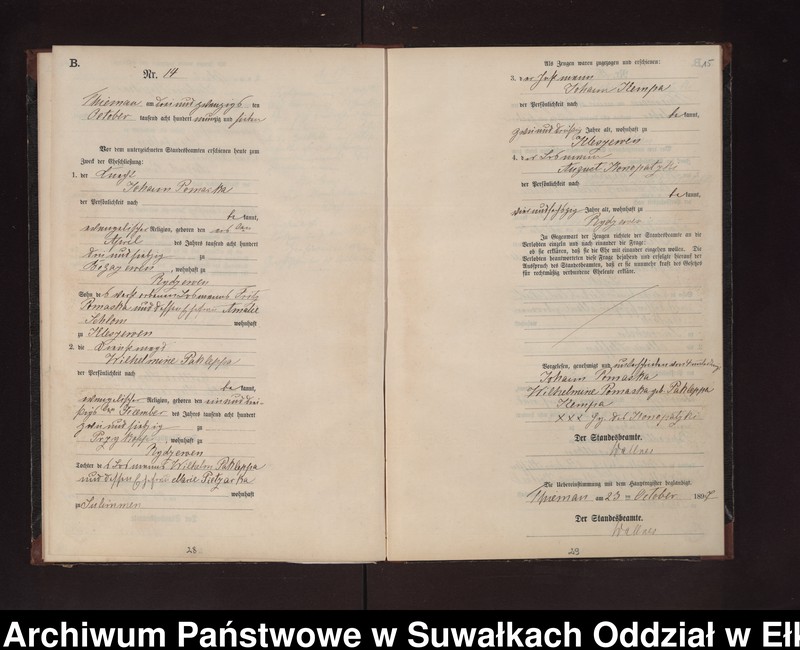 B.
Nr. 14
am drei und zwanzigs ten
October tausend acht hundert neunzig und sieben
Vor dem unterzeichneten Standesbeamten erschienen heute zum
Zweck der Eheschließung:
1. der Knecht
Johann Pomaska
der Persönlichkeit nach
be kannt,
evangelischer Religion, geboren den
April des Jahres tausend acht hundert
drei und siebzig zu
, wohnhaft zu
Rydzewen
Sohn des verstorbenen Losmanns Fritz
Pomaska und dessen Ehefrau Amalie
wohnhaft
zu Kleszewen
2. die Dienstmagd
Wilhelmine Pakleppa
der Persönlichkeit nach
be kannt,
evangelischer Religion, geboren den ein und drei-
ßigs ten December des Jahres tausend acht hundert
zwei und siebzig zu
, wohnhaft zu
Rydzewen
Tochter des Losmanns Wilhelm Pakleppa
und dessen Ehefrau Marie
wohnhaft
zu Sulimmen
28
Als Zeugen waren zugezogen und erschienen:
3. der
Johann Kempa
der Persönlichkeit nach
be kannt,
zwei und dreißig Jahre alt, wohnhaft zu
Kleszewen
4. der Losmann
August Konopatzki
der Persönlichkeit nach
be kannt,
vier und sechszig Jahre alt, wohnhaft zu
Rydzewen
In Gegenwart der Zeugen richtete der Standesbeamte an die
Verlobten einzeln und nach einander die Frage:
ob sie erklären, daß sie die Ehe mit einander eingehen wollen. Die
Verlobten beantworteten diese Frage bejahend und erfolgte hierauf der
Ausspruch des Standesbeamten, daß er sie nunmehr kraft des Gesetzes
für rechtmäßig verbundene Eheleute erkläre.
Vorgelesen, genehmigt und unterschrieben
Johann Pomaska
Wilhelmine Pomaska geb. Pakleppa
Kempa
xxx Konopatzki
Der Standesbeamte.
Die Uebereinstimmung mit dem Hauptregister beglaubigt
am 23 ten October 1897
Der Standesbeamte.
29
Archiwum Państwowe w Suwałkach Oddział w Ełk